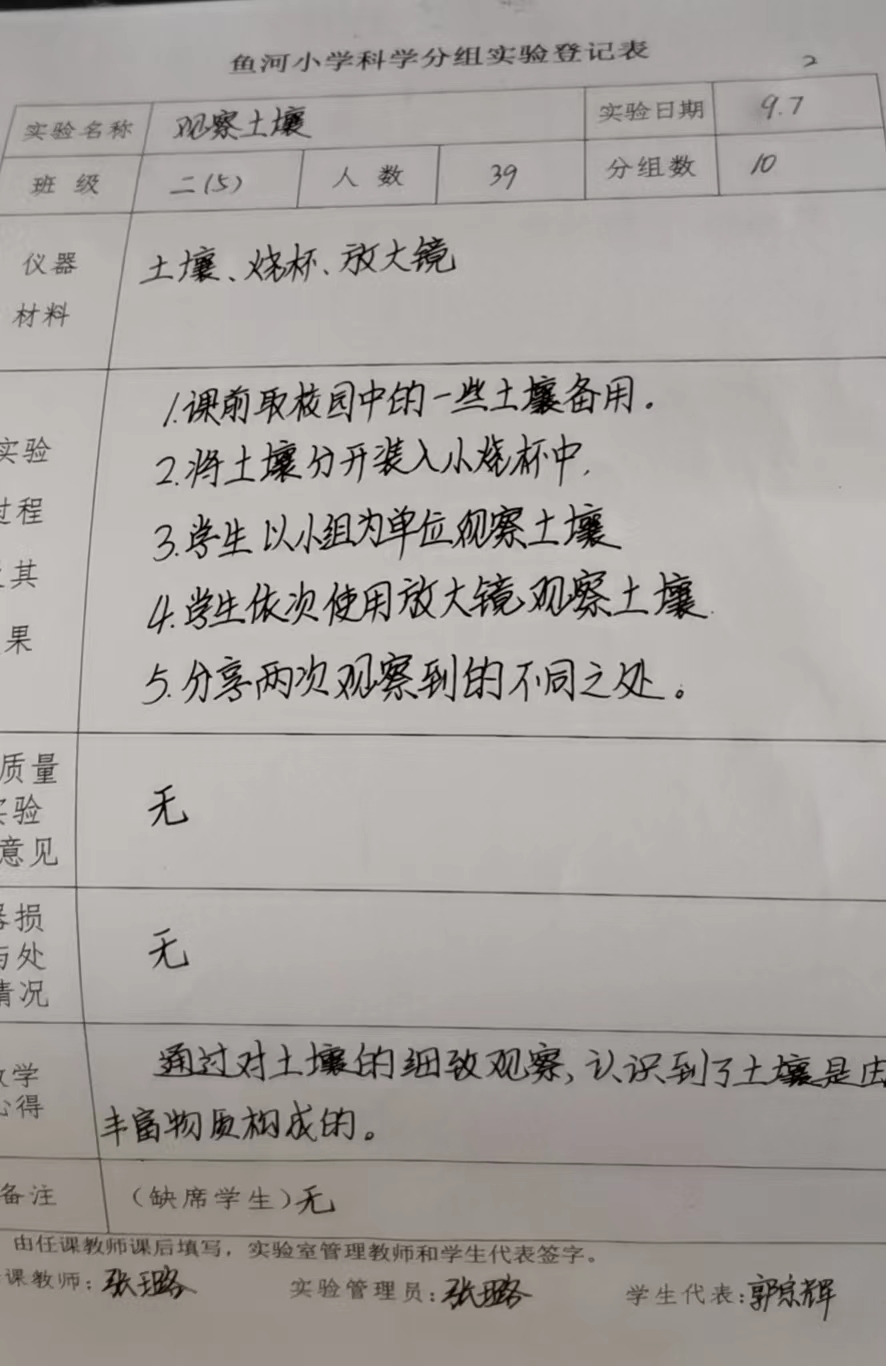 鱼河小学科学分组实验登记表
2
实验名称 观察土壤 实验日期 9.7
班 级 二(5) 人 数 39 分组数 10
仪器
材料
土壤、烧杯、放大镜
实验
过程
及其
果
1.课前取校园中的一些土壤备用。
2.将土壤分开装入小烧杯中,
3.学生以小组为单位观察土壤
4.学生依次使用放大镜观察土壤.
5.分享两次观察到的不同之处。
质量
实验
意见
无
器损
与处
情况
无
教学
心得
通过对土壤的细致观察,认识到了土壤是由
丰富物质构成的。
备注 (缺席学生)无
由任课教师课后填写,实验室管理教师和学生代表签字。
课教师:张璐 实验管理员:张璐 学生代表:郭宗辉